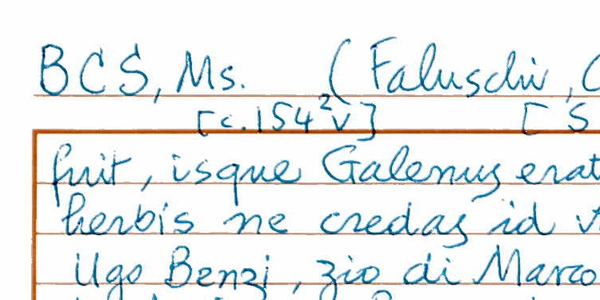 BCS, Ms. (Faluschi, C
[c.154²v] [S
fuit, isque Galenus erat
herbis ne credas id v
Ugo Benzi, zio di Marco